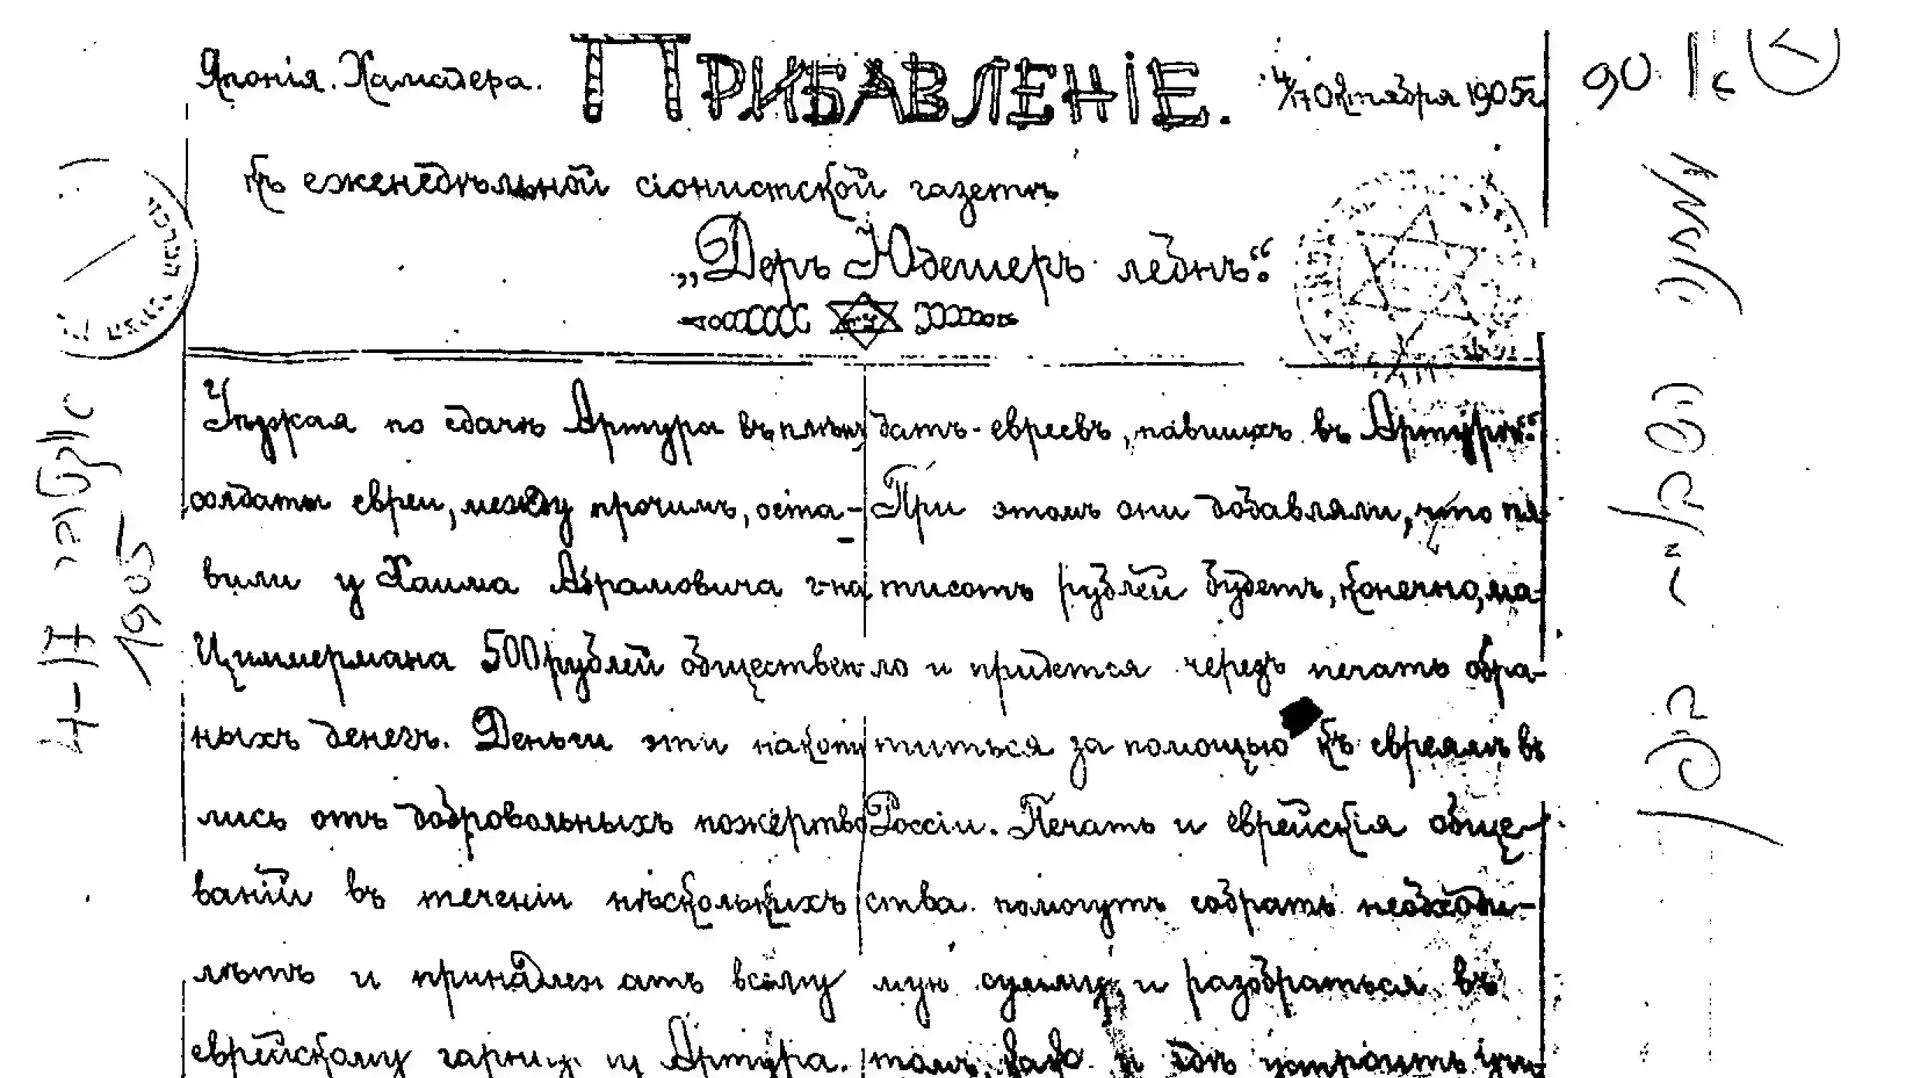 Японія. Хамадера.
ПРИБАВЛЕНІЕ.
4/17 Октября 1905 г.
къ еженедѣльной сіонистской газетѣ
„Деръ Юдешеръ лебнъ“.
Уѣзжая по сдачѣ Артура въ плѣнъ
солдаты евреи, между прочимъ, оста-
вили у Хаима Абрамовича г-на
Циммермана 500 рублей обществен-
ныхъ денегъ. Деньги эти накопи
лись отъ добровольныхъ пожертво
ваній въ теченіи нѣсколькихъ
лѣтъ и принадлежатъ всему
еврейскому Артура.
датъ-евреевъ, павшихъ въ Артурѣ.“
При этомъ они добавляли, что пя-
тисотъ рублей будетъ, конечно, ма-
ло и придется черезъ печать обра-
титься за помощью къ евреямъ въ
Россіи. Печать и еврейскія обще-
ства помогутъ собрать необходи-
мую сумму и разобраться въ
томъ, какъ и гдѣ устроить
4-17
1905
90